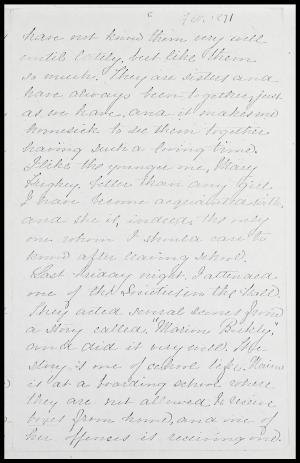 Feb. 1871
have not known them very well
until lately, but like them
so much. They are sisters and
have always been together, just
as we have, and it makes me
homesick to see them together
having such a loving time.
I like the younger one, Mary
better than any girl
I have become acquainted with
and she is, indeed, the only
one whom I should care to
know after leaving school.
Last Friday night, I attended
one of the Societies in the Hall.
They acted several scenes from
a story called "Marion
and did it very well. The
story is one of school life. Marion
is at a boarding school where
they are not allowed to receive
boxes from home, and one of
her offenses is receiving one.